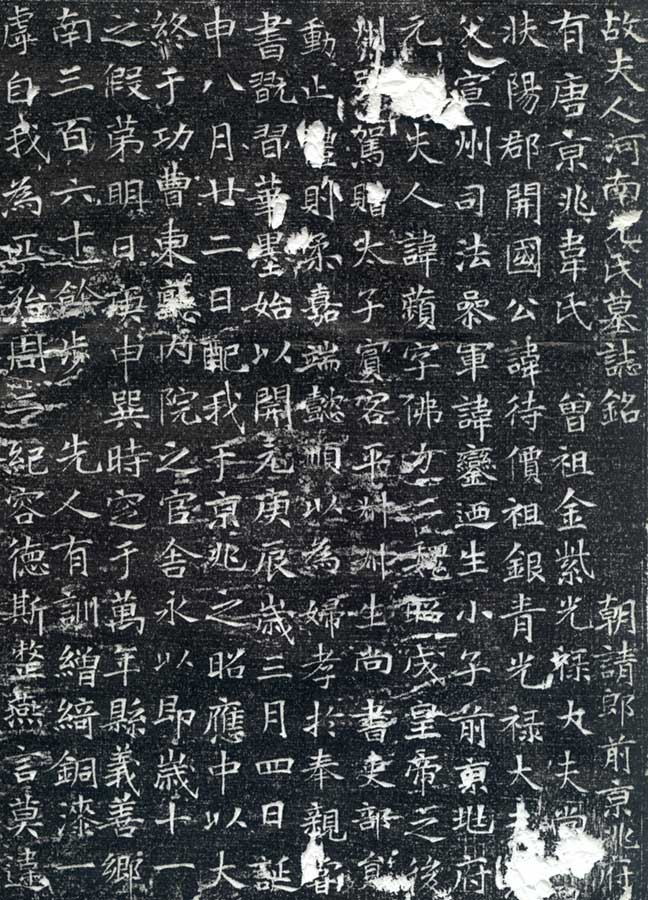 故夫人河南元氏墓誌銘 朝請郎前京兆府
有唐京兆韋氏 曾祖金紫光禄大夫尚
扶陽郡開國公諱待價祖銀青光禄大
父宣州司法叅軍諱鑾迺生小子前京兆府
元 夫人諱蘋字佛力二魏昭成皇帝之後
州別駕贈太子賓客平叔叔生尚書吏部員
動止禮則柔嘉端懿順以為婦孝於奉親甞
書翫習華墨始以開元庚辰歲三月四日誕
申八月廿二日配我于京兆之昭應中以大
終于功曹東廳內院之官舍永以即歲十一
之假第明日庚申巽時窆于萬年縣義善鄉
南三百六十餘步 先人有訓繒綺銅漆一
虖自我為匹殆周二紀容德斯整燕言莫違